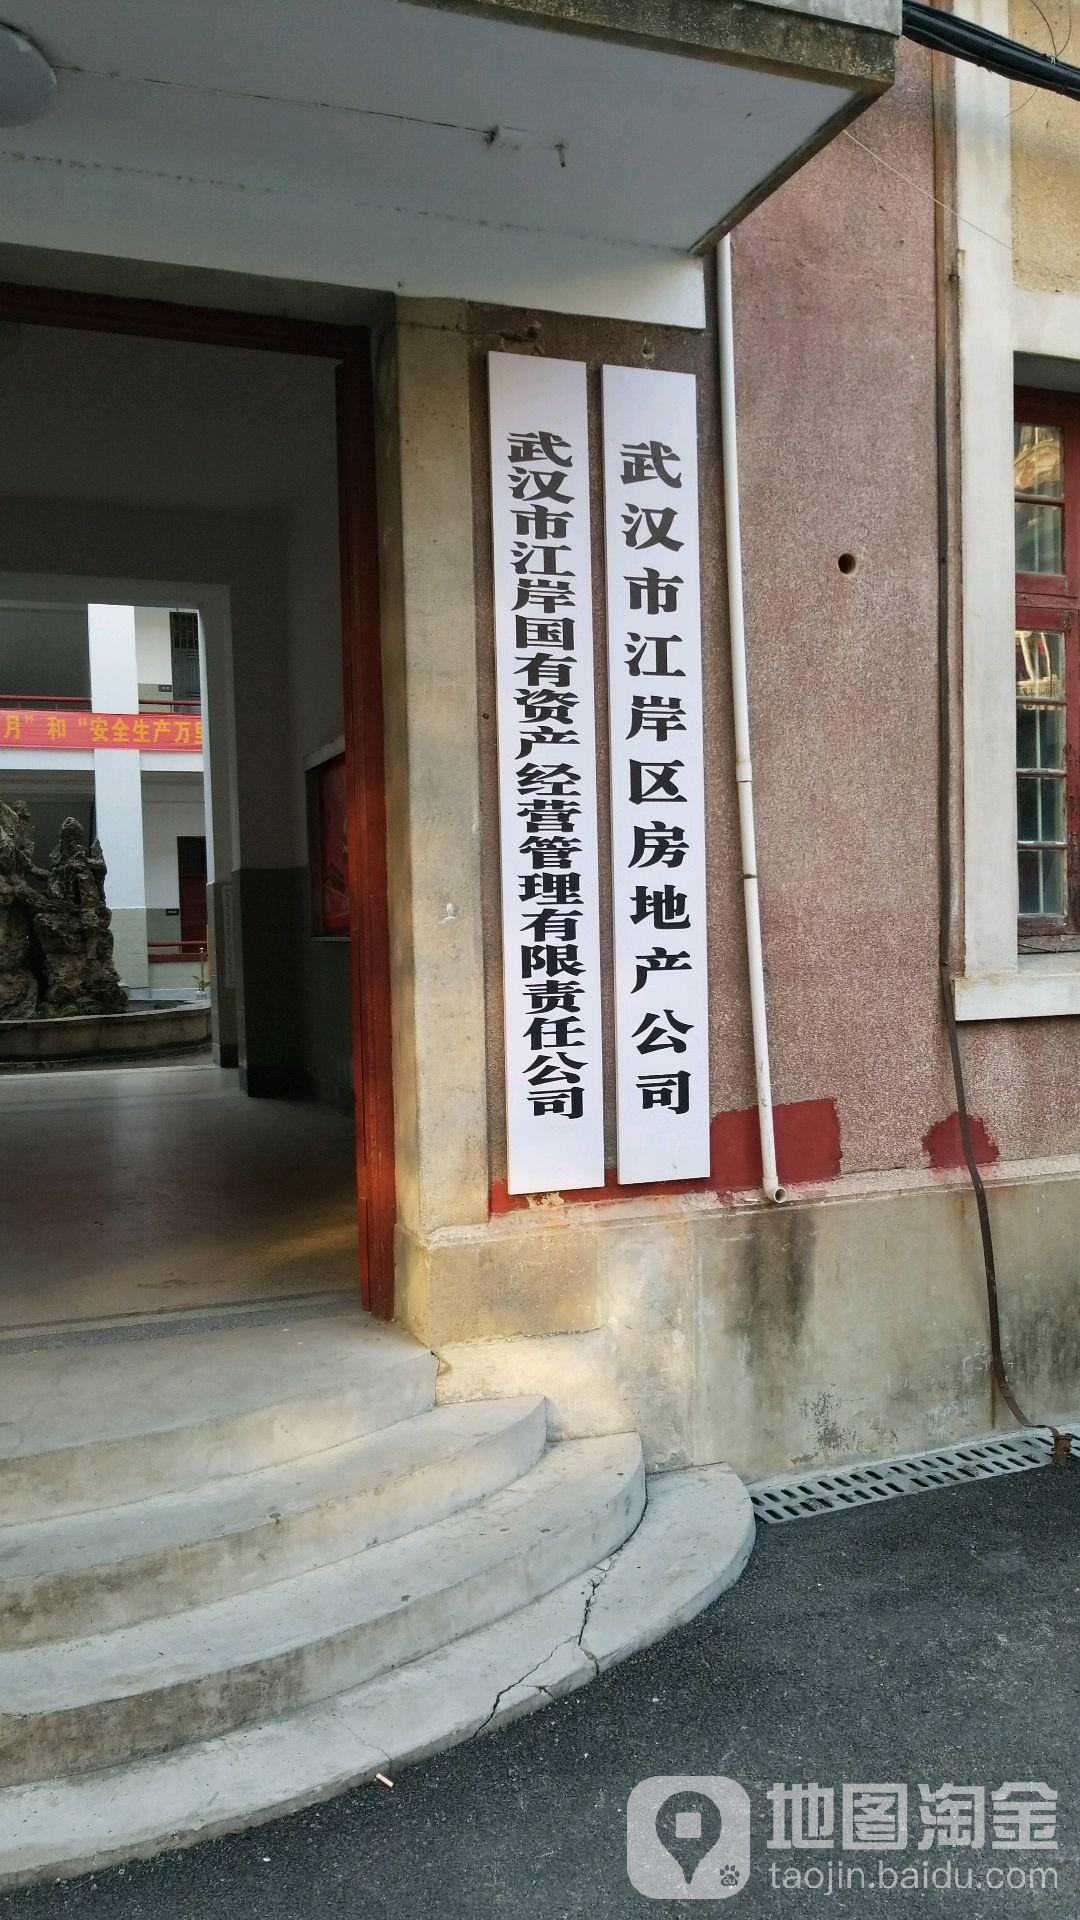 武汉市江岸国有资产经营管理有限责任公司
武汉市江岸区房地产公司
月”和“安全生产万里
地图淘金
taojin.baidu.com